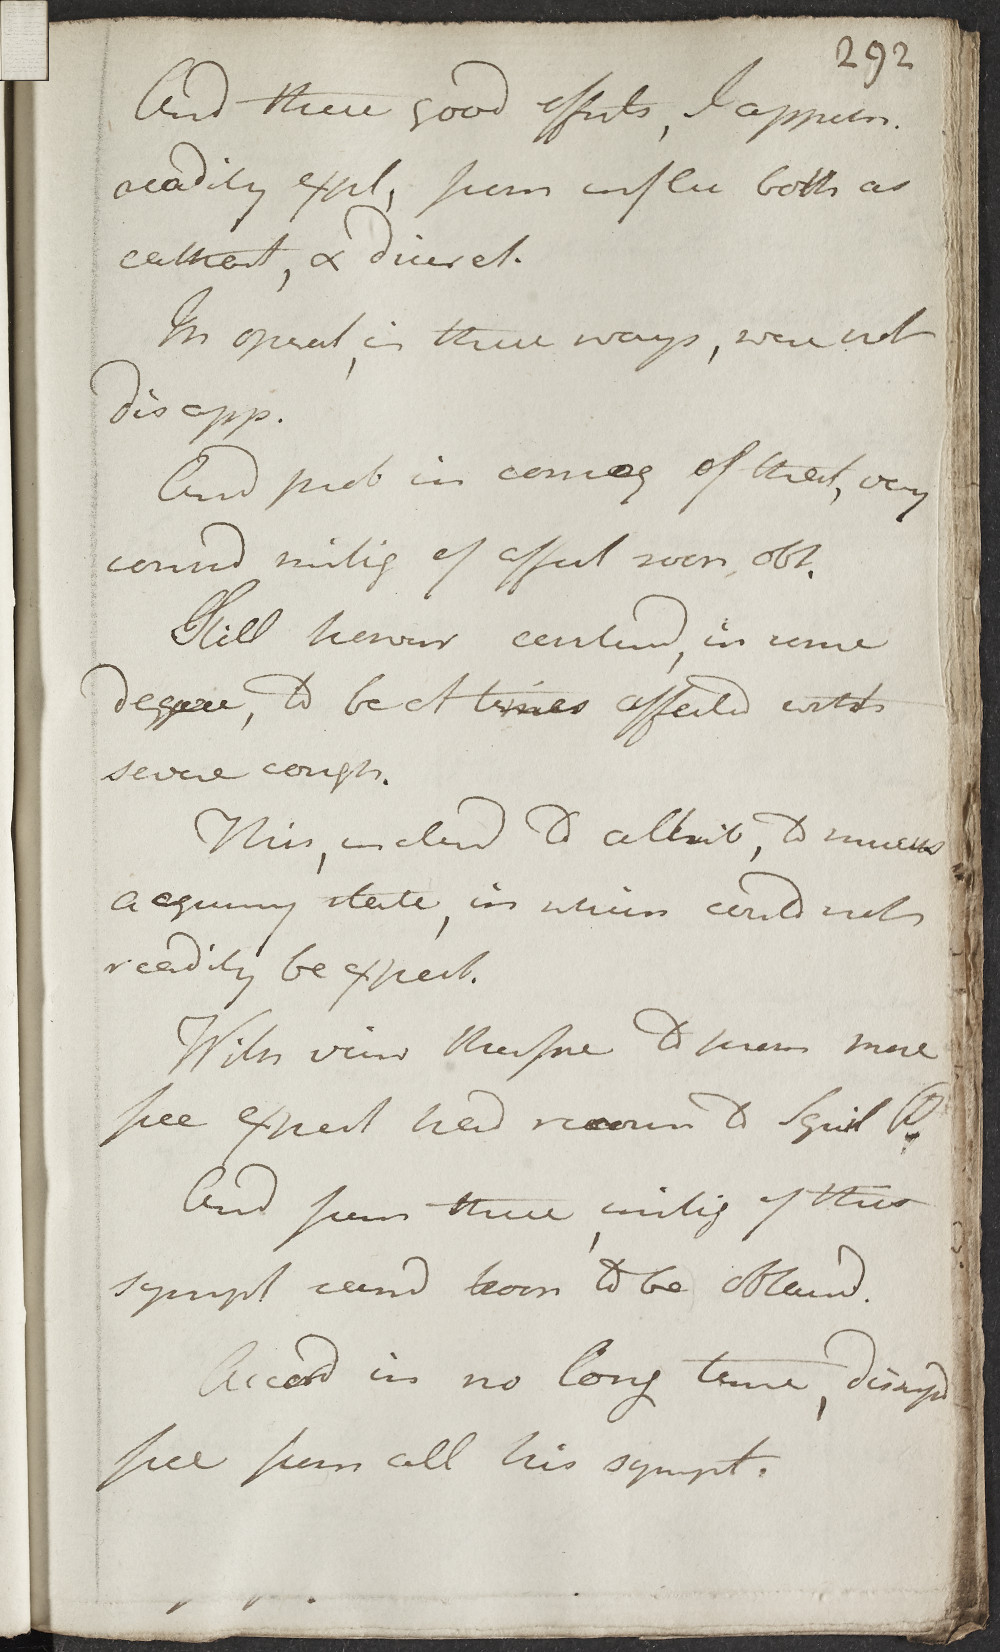 292
And these good effects, I apprehn.
readily expl, from influ both as
cathart, & diuret.
In operat, in these ways, were not
disapp.
And prob in conseq of that, very
consid mitig of affect soon obt.
Still however continud, in some
degree, to be at times affected with
severe cough.
This, inclend to attrib, to mucus
acquiring state, in which could not
readily be expect.
With view therefore to from more
free expect had recours to Squil P.
And from these, mitig of this
sympt seemd soon to be obtaind.
Accord in no long time, dismissd
free from all his sympt.